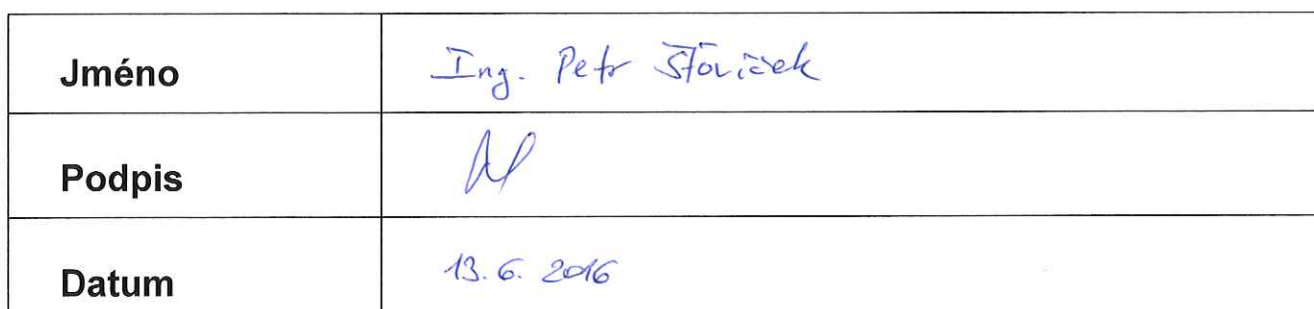 Jméno Ing. Petr Šťovíček
Podpis
Datum 13. 6. 2016